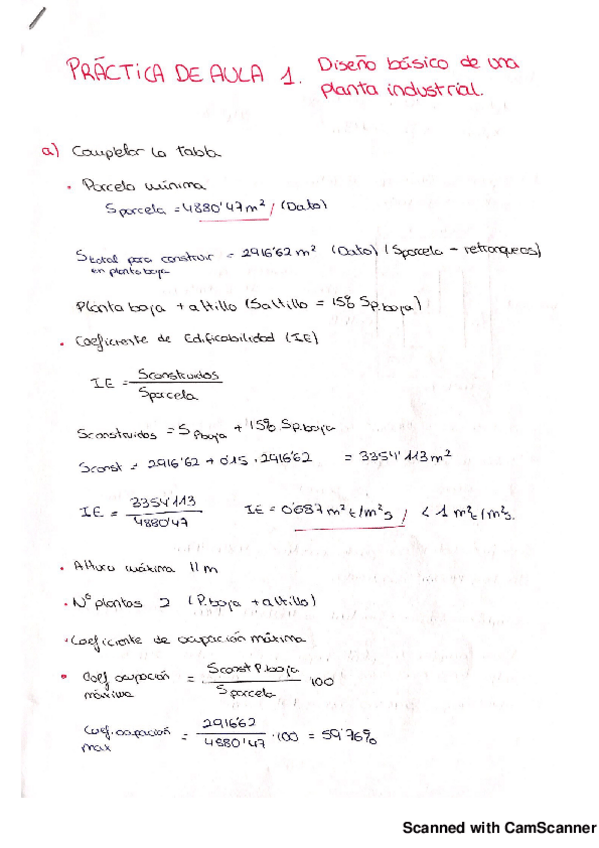 PRÁCTICA DE AULA 1. Diseño básico de una
planta industrial.
a) Completar la tabla
• Parcela mínima
Sparcela = 4880'47 m² / (Dato)
Stotal para construir en planta baja = 2916'62 m² (Dato) (Sparcela - retranqueos)
Planta baja + altillo (Saltillo = 15% Sp.baja)
• Coeficiente de Edificabilidad (IE)
IE = Sconstruidos / Sparcela
Sconstruidos = Spbaja + 15% Sp.baja
Sconst = 2916'62 + 0'15 · 2916'62 = 3354'113 m²
IE = 3354'113 / 4880'47 IE = 0'687 m²t/m²s / < 1 m²t/m²s.
• Altura máxima 11 m
• Nº plantas 2 (P.baja + altillo)
• Coeficiente de ocupación máxima
• Coef ocupación máxima = Sconst P.baja / Sparcela · 100
Coef. ocupación max = 2916'62 / 4880'47 · 100 = 59'76%
Scanned with CamScanner